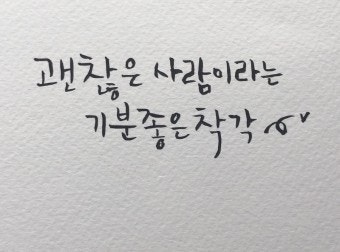 괜찮은 사람이라는
기분좋은착각